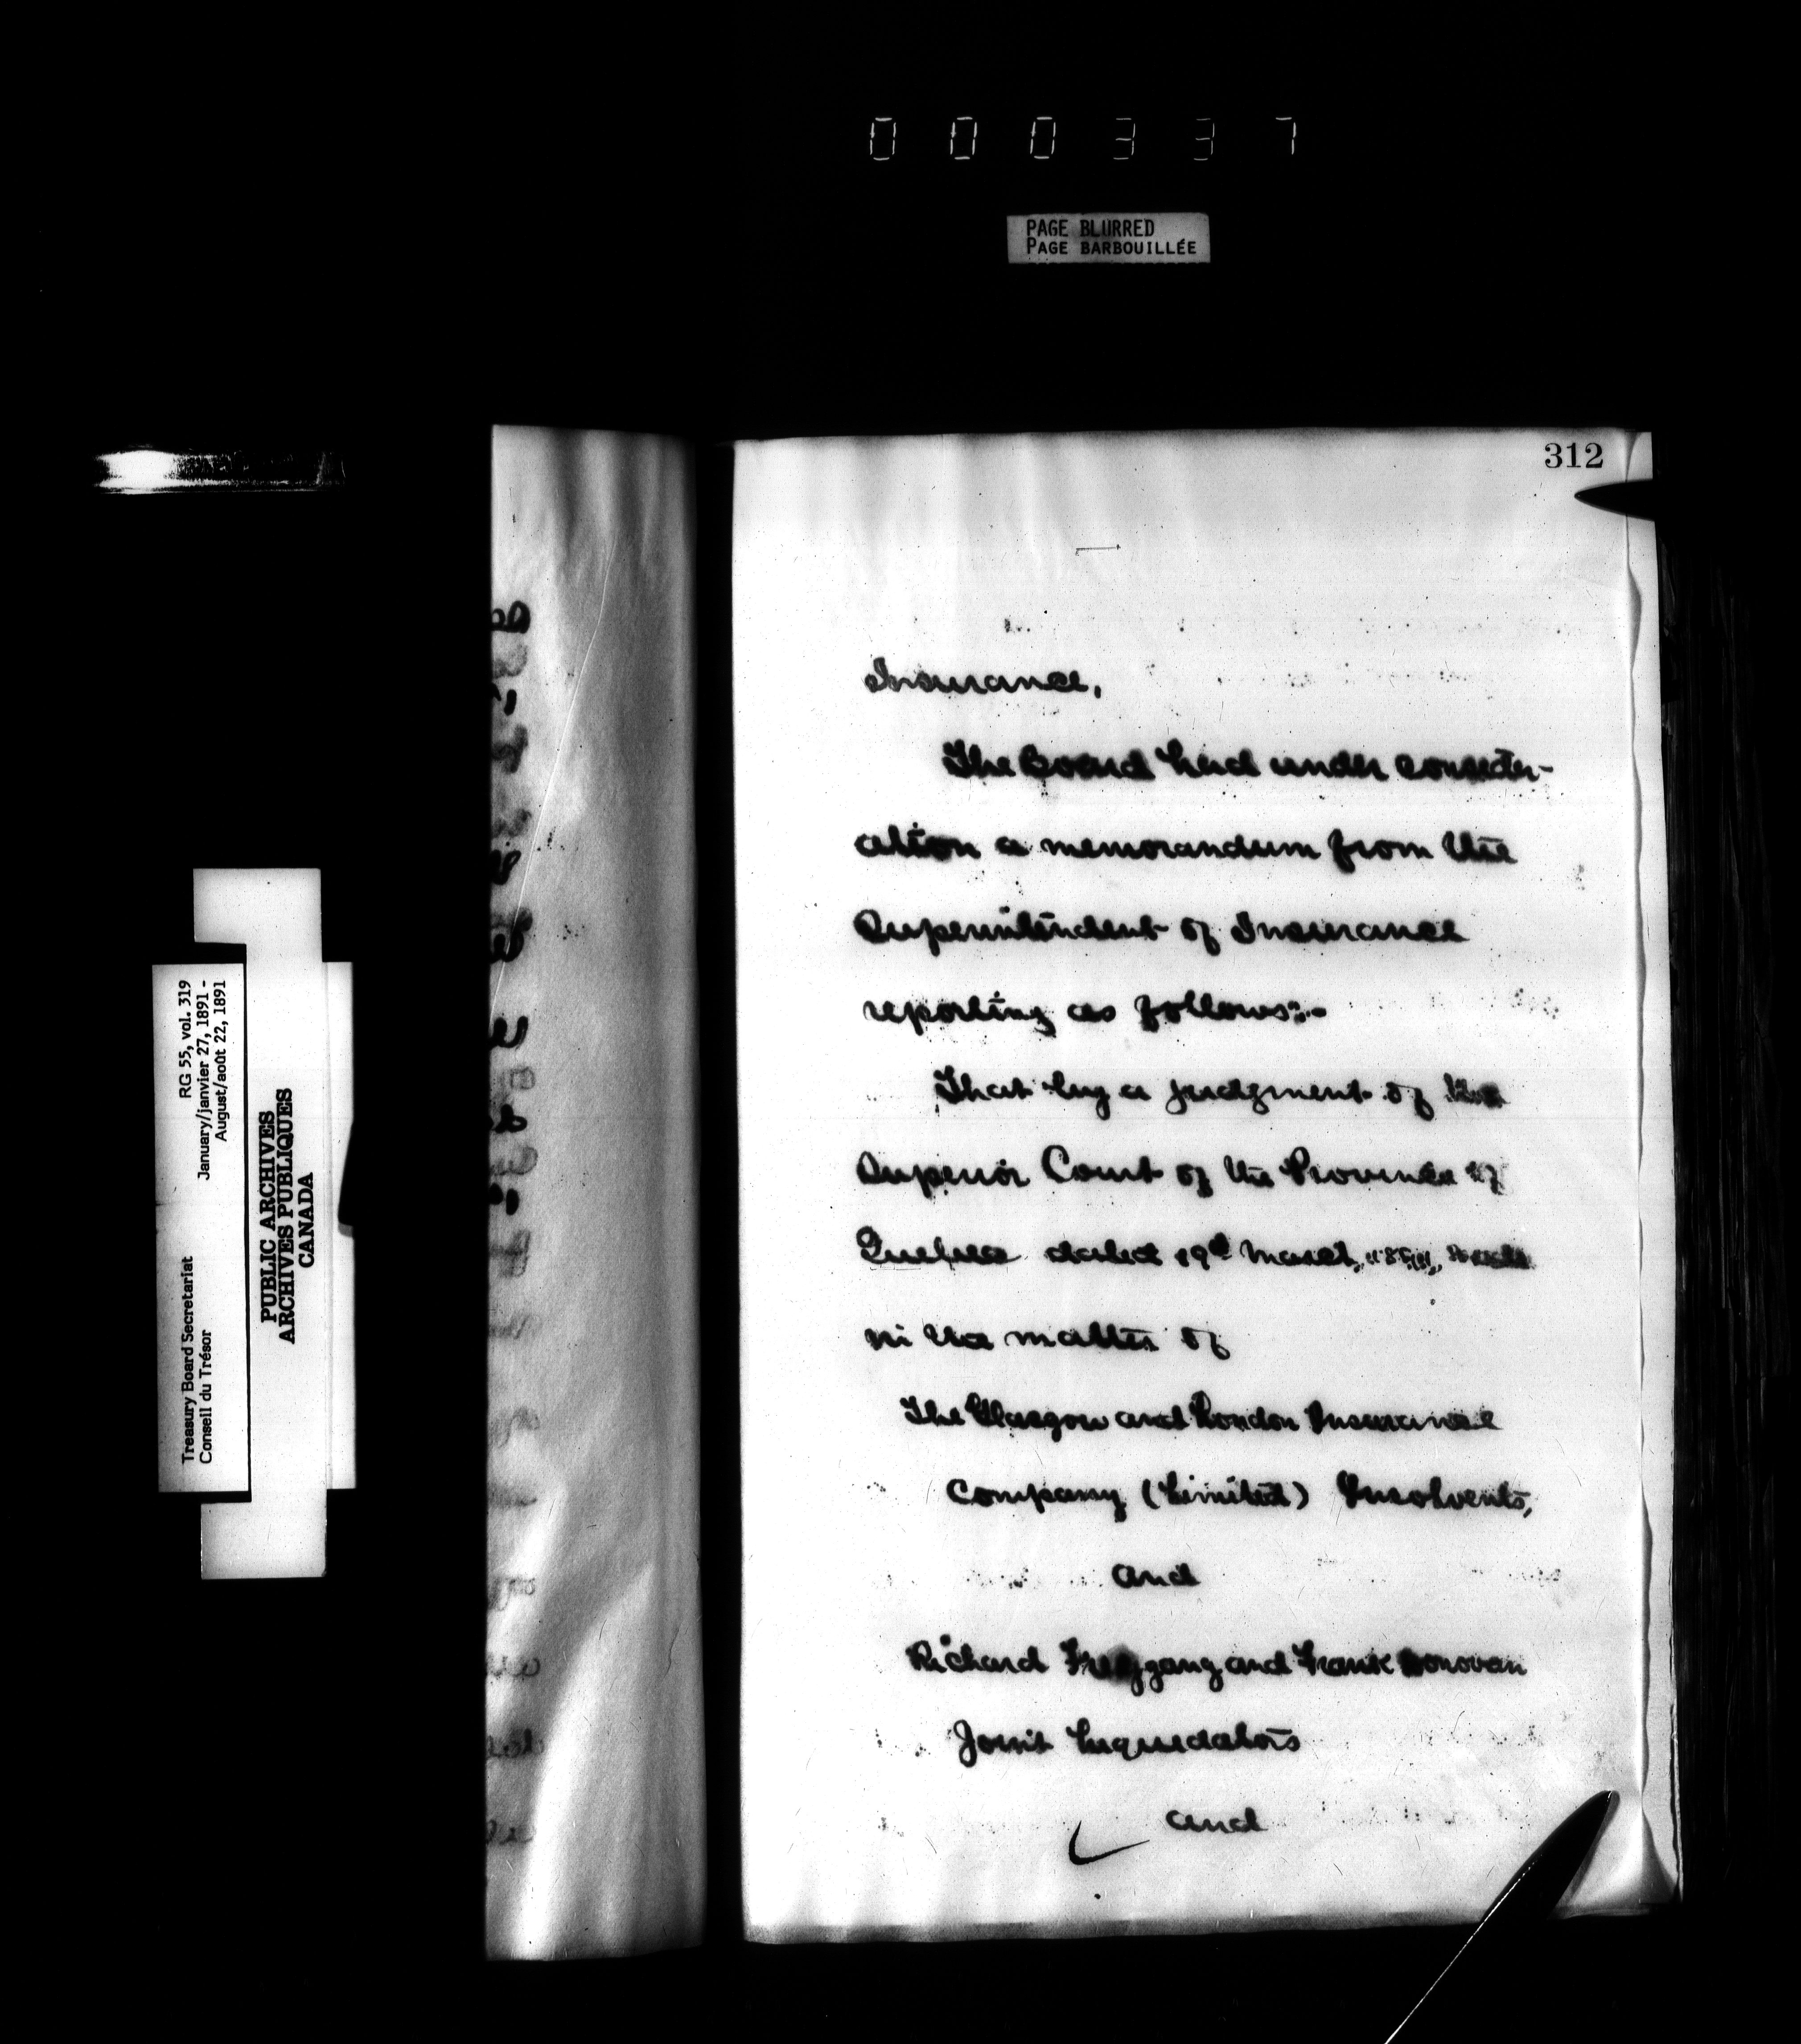 000337
PAGE BLURRED
PAGE BARBOUILLÉE
312
Insurance,
The Board had under consider-
ation a memorandum from the
Superintendent of Insurance
reporting as follows:-
That by a judgment of the
Superior Court of the Province of
Quebec dated 19th March, 1891, made
in the matter of
The Glasgow and London Insurance
Company (Limited) Insolvents,
and
Richard Freygang and Frank Donovan
Joint Liquidators
and
RG 55, vol. 319
January/janvier 27, 1891 -
August/août 22, 1891
Treasury Board Secretariat
Conseil du Trésor
PUBLIC ARCHIVES
ARCHIVES PUBLIQUES
CANADA